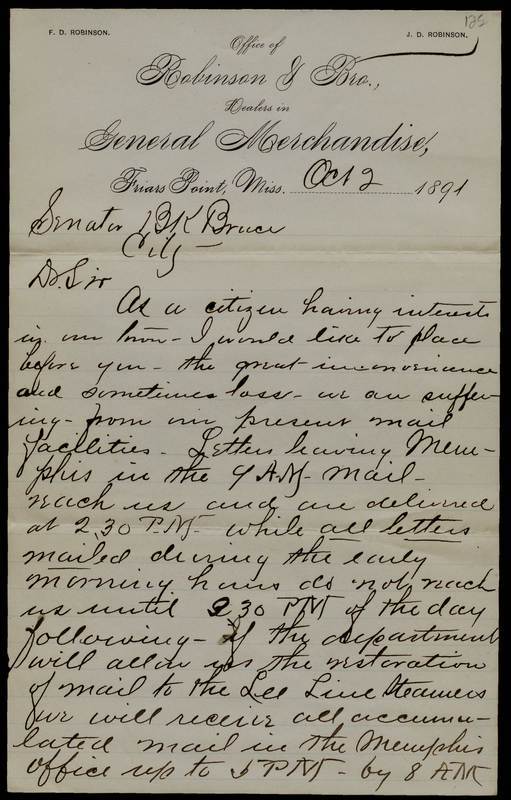 125
F. D. ROBINSON.
J. D. ROBINSON.
Office of
Robinson & Bro.,
Dealers in
General Merchandise,
Friars Point, Miss. Oct 2 1891
Senator B K Bruce
City
D. Sir
As a citizen having interests
in our town - I would like to place
before you - the great inconvenience
and sometimes loss - we are suffer-
ing - from our present mail
facilities - Letters leaving Mem-
phis in the 9 A.M. mail -
reach us and are delivered
at 2,30 P.M. while all letters
mailed during the early
morning hours do not reach
us until 2,30 PM of the day
following - If the department
will allow us the restoration
of mail to the Lee Line Steamers
we will receive all accumu-
lated mail in the Memphis
office up to 5 PM - by 8 AM